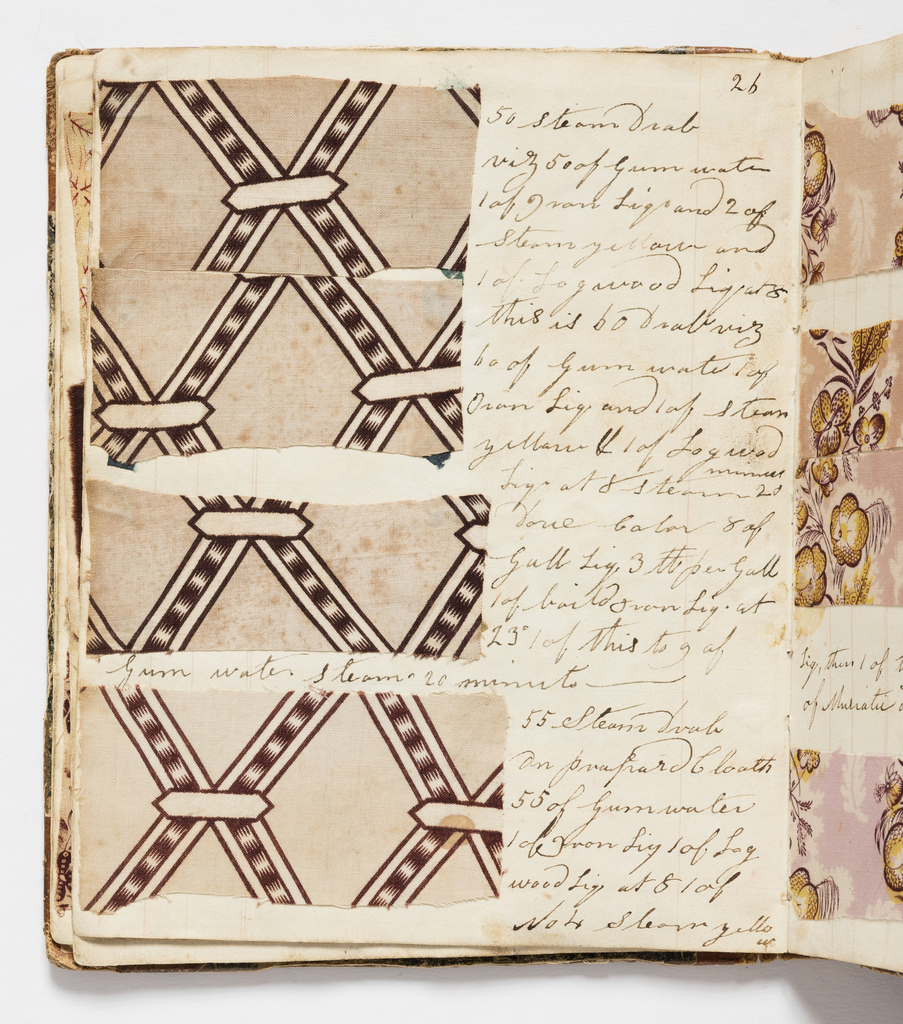 26
50 steam Drab
viz 50 of Gum water
1 of Iron Liq and 2 of
Steam yellow and
1 of Logwood Liq at 8
this is 60 Drab viz
60 of Gum water 1 of
Iron Liq and 1 of steam
yellow & 1 of Logwood
Liq at 8 steam 20 minuts
Dove Calor 8 of
Gall Liq 3 lb per Gall
1 of boild Iron Liq at
23° 1 of this to 9 of
Gum water steam 20 minuts
55 Steam Drab
on prapard Cloath
55 of Gum water
1 of Iron Liq 1 of Log
wood Liq at 8 1 of
No 4 steam yellow
Liq, then 1 of
of Muriate